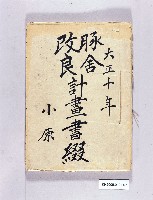 大正十年
豚舎
改良計畫書綴
小原